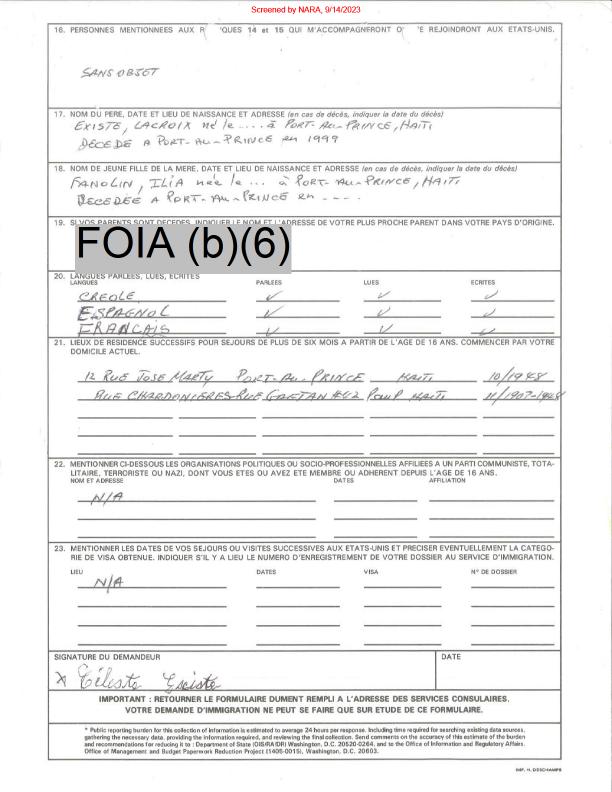 Screened by NARA, 9/14/2023
16. PERSONNES MENTIONNEES AUX R QUES 14 et 15 QUI M'ACCOMPAGNERONT O 'E REJOINDRONT AUX ETATS-UNIS.
SANS OBJET
17. NOM DU PERE, DATE ET LIEU DE NAISSANCE ET ADRESSE (en cas de décès, indiquer la date du décès)
EXISTE, LACROIX né le .... à PORT-AU-PRINCE, HAITI
DECEDE A PORT-AU-PRINCE en 1999
18. NOM DE JEUNE FILLE DE LA MERE, DATE ET LIEU DE NAISSANCE ET ADRESSE (en cas de décès, indiquer la date du décès)
FANOLIN, ILIA née le ... à PORT-AU-PRINCE, HAITI
DECEDEE A PORT-AU-PRINCE en ....
19. SI VOS PARENTS SONT DECEDES, INDIQUER LE NOM ET L'ADRESSE DE VOTRE PLUS PROCHE PARENT DANS VOTRE PAYS D'ORIGINE.
FOIA (b)(6)
20. LANGUES PARLEES, LUES, ECRITES
LANGUES PARLEES LUES ECRITES
CREOLE ✓ ✓ ✓
ESPAGNOL ✓ ✓ ✓
FRANCAIS ✓ ✓ ✓
21. LIEUX DE RESIDENCE SUCCESSIFS POUR SEJOURS DE PLUS DE SIX MOIS A PARTIR DE L'AGE DE 16 ANS. COMMENCER PAR VOTRE
DOMICILE ACTUEL.
12 RUE JOSE MARTY PORT-AU-PRINCE HAITI 10/1948
RUE CHARDONIERES-RUE GAETAN #42 PauP HAITI 11/1907-1948
22. MENTIONNER CI-DESSOUS LES ORGANISATIONS POLITIQUES OU SOCIO-PROFESSIONNELLES AFFILIEES A UN PARTI COMMUNISTE, TOTA-
LITAIRE, TERRORISTE OU NAZI, DONT VOUS ETES OU AVEZ ETE MEMBRE OU ADHERENT DEPUIS L'AGE DE 16 ANS.
NOM ET ADRESSE DATES AFFILIATION
N/A
23. MENTIONNER LES DATES DE VOS SEJOURS OU VISITES SUCCESSIVES AUX ETATS-UNIS ET PRECISER EVENTUELLEMENT LA CATEGO-
RIE DE VISA OBTENUE. INDIQUER S'IL Y A LIEU LE NUMERO D'ENREGISTREMENT DE VOTRE DOSSIER AU SERVICE D'IMMIGRATION.
LIEU DATES VISA N° DE DOSSIER
N/A
SIGNATURE DU DEMANDEUR DATE
x Céleste Existe
IMPORTANT : RETOURNER LE FORMULAIRE DUMENT REMPLI A L'ADRESSE DES SERVICES CONSULAIRES.
VOTRE DEMANDE D'IMMIGRATION NE PEUT SE FAIRE QUE SUR ETUDE DE CE FORMULAIRE.
* Public reporting burden for this collection of information is estimated to average 24 hours per response. Including time required for searching existing data sources,
gathering the necessary data, providing the information required, and reviewing the final collection. Send comments on the accuracy of this estimate of the burden
and recommendations for reducing it to : Department of State (OIS/RA/DR) Washington, D.C. 20520-0264, and to the Office of Information and Regulatory Affairs.
Office of Management and Budget Paperwork Reduction Project (1405-0015), Washington, D.C. 20603.
IMP. H. DESCHAMPS